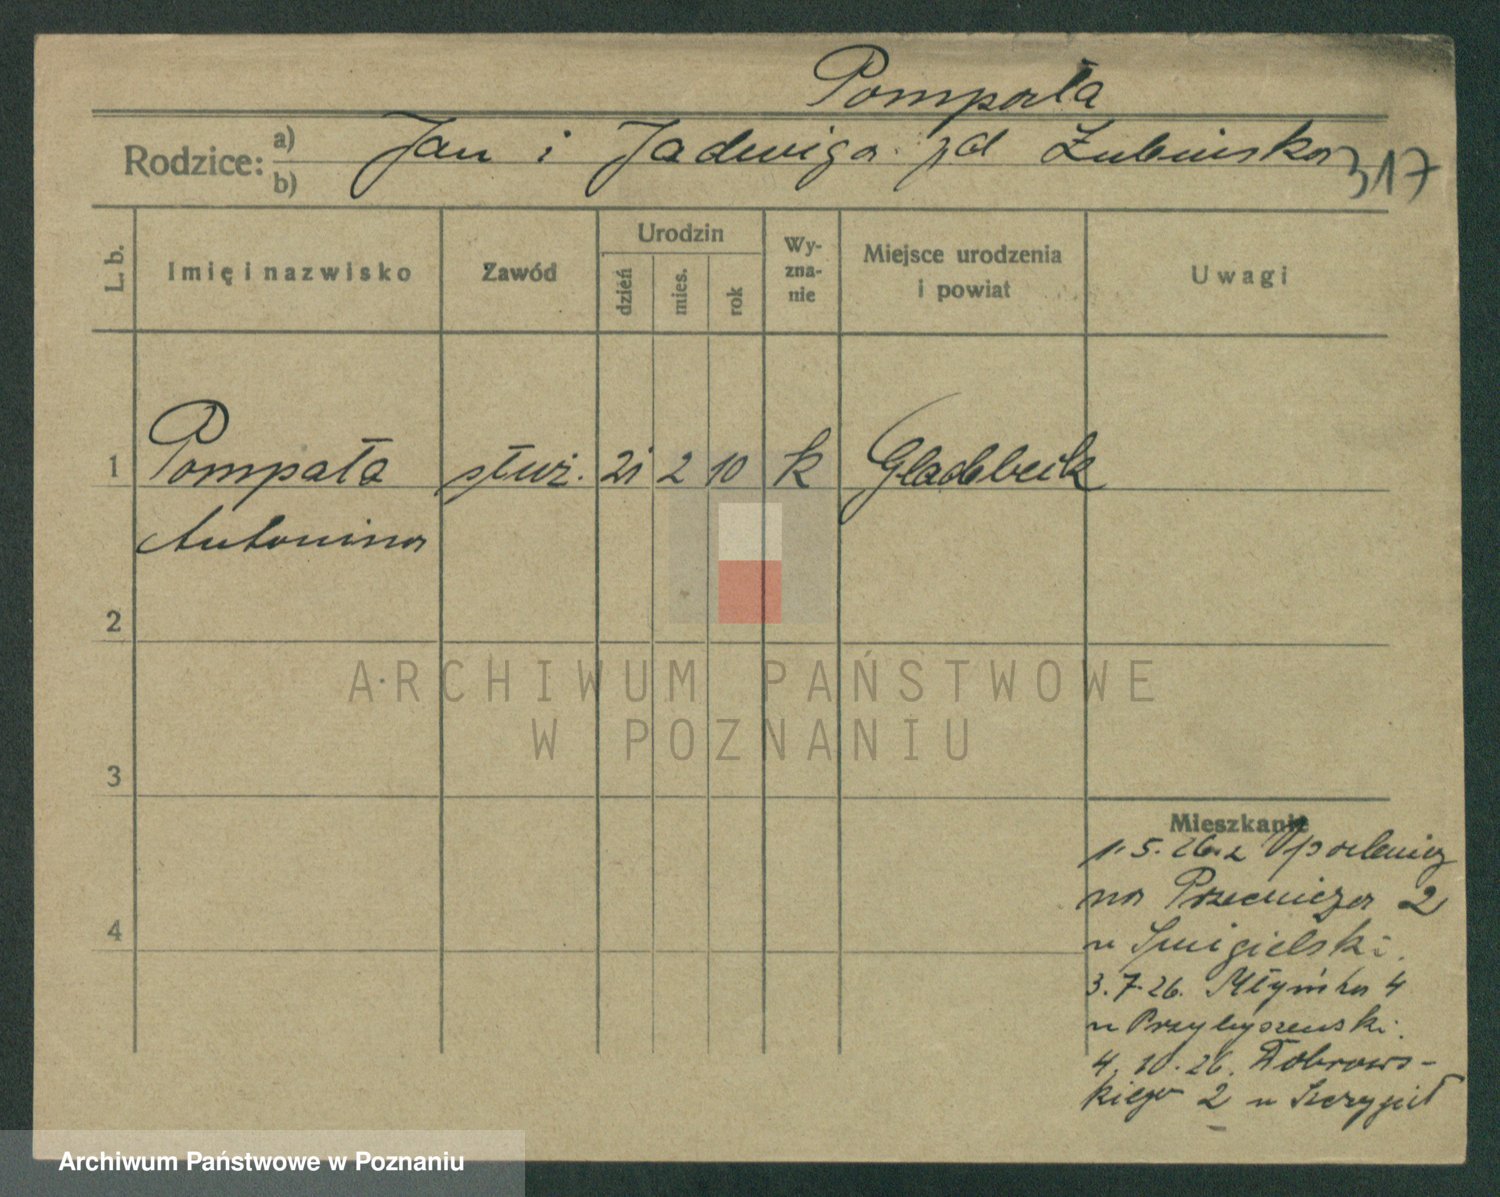 Pompała
Rodzice: a) b) Jan i Jadwiga zd Łubińska
317
L. b.
Imię i nazwisko
Zawód
Urodzin
dzień mies. rok
Wy-
zna-
nie
Miejsce urodzenia
i powiat
Uwagi
1 Pompała służ. 21 2 10 k Gladbeck
Antonina
2
ARCHIWUM PAŃSTWOWE
W POZNANIU
3
4
Mieszkanie
1. 5. 26. z
na 2
u Śmigielski.
3. 7. 26. Młyńska 4
u Przybyszewski.
4. 10. 26. Dobrows-
kiego 2 u Szczygieł
Archiwum Państwowe w Poznaniu